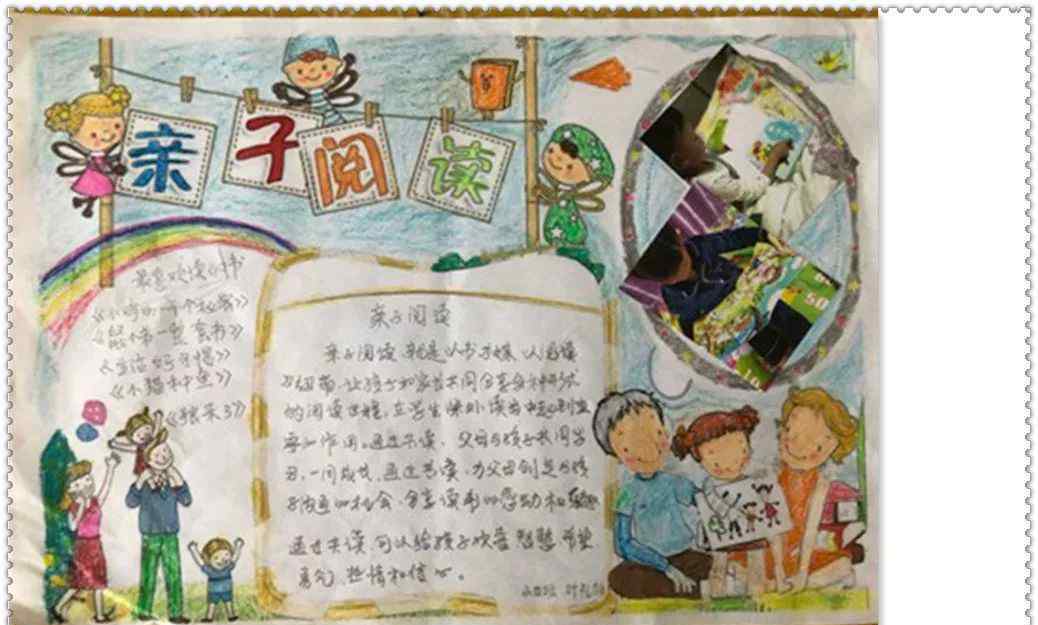 亲子阅读
最喜欢读的书
《小房的一个秘密》
一套书》
《生活好习惯》
《小猫和鱼》
《狼来了》
亲子阅读
亲子阅读,就是以书为媒,以阅读
为纽带,让孩子和家长共同分享多种形式
的阅读过程,在学生课外读书中起到
作用。通过共读,父母与孩子共同学
习,一同成长,通过共读,为父母创造与孩
子沟通的机会,分享读书的感动和乐趣
通过共读,可以给孩子欢喜 智慧 希望
勇气、热情和信心。
50
10